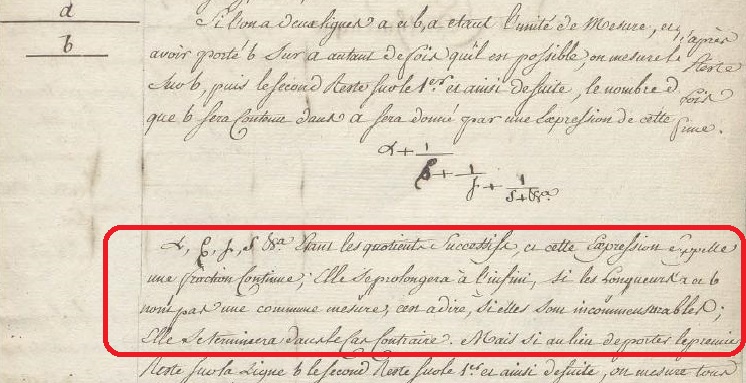 a
b
Si l'on a deux lignes a et b, a etant l'unité de Mesure, et qu'après
avoir porté b Sur a autant de fois qu'il est possible, on mesure le Reste
sur b, puis le second Reste sur le 1.er et ainsi de suite, le nombre de fois
que b sera Contenu dans a sera donné par une Expression de cette forme.
α + 1
β + 1
γ + 1
δ + &a.
α, β, γ, δ &a Etant les quotients Successifs, et cette Expression s'appelle
une fraction Continue; Elle Se prolongera à l'infini, si les Longueurs a et b
n'ont pas une commune mesure, c'en a dire, Si elles sont incommensurables;
Elle Se terminera dans le Cas Contraire. Mais si au lieu de porter le premier
Reste sur la Ligne b le second Reste sur le 1.er et ainsi de suite, on mesure tous